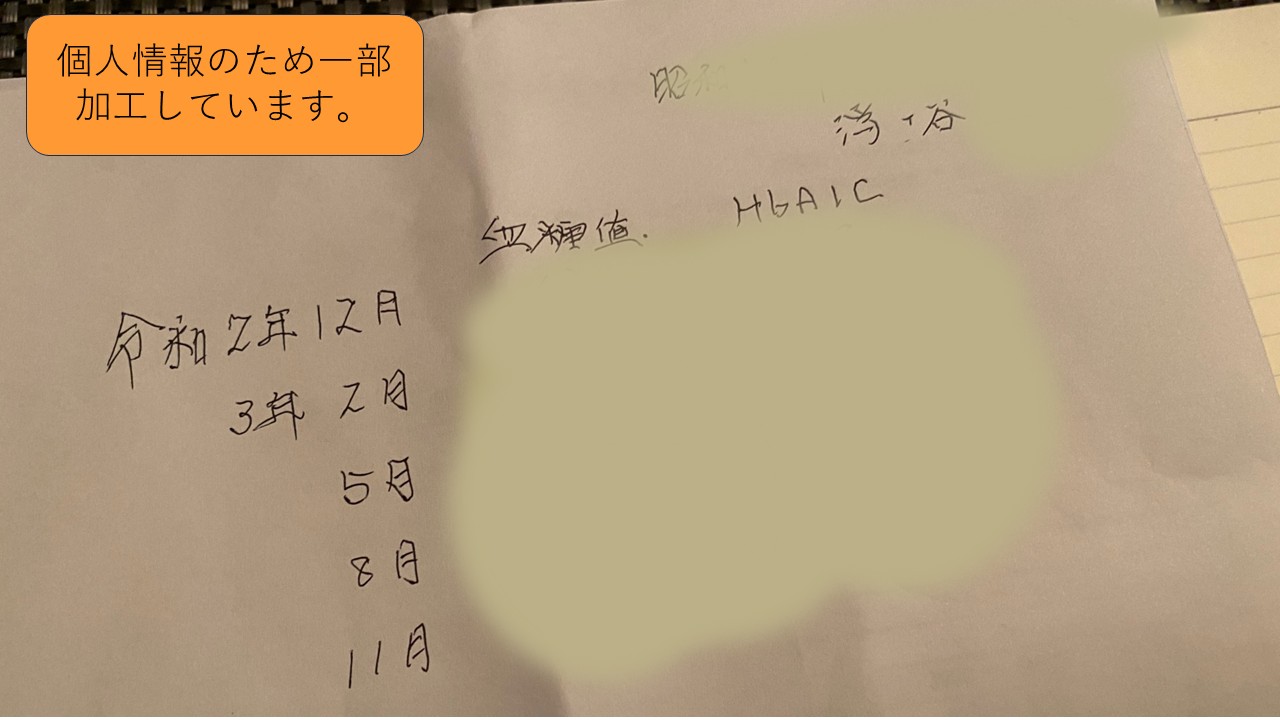 個人情報のため一部
加工しています。
昭和
谷
血糖値. HbA1C
令和2年12月
3年 2月
5月
8月
11月